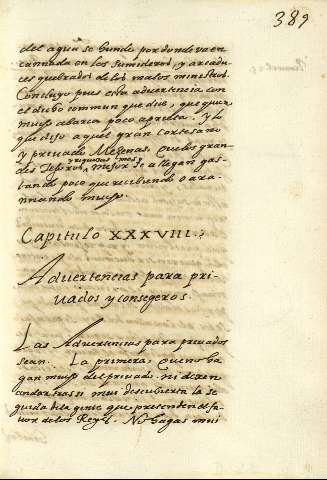 389
del agua se hunde por donde va en
cannada en los sumideros, y arcadu
ces quebrados de los malos ministros.
Concluyo pues esta advertencia con
el dicho commun que dice, que quien
mucho abarca poco aprieta. y lo
que dijo aquel gran cortesano
y privado Mezenas. Que los gran
des Tesoros, y riquezas mas, y mejor se allegan gas
tando poco que recibiendo o ara
nnando mucho.
Capitulo XXXVIII.
Advertencias para pri
vados y consegeros.
Las Advertencias para privados
sean. La primera, Que no ha
gan mucho del privado. ni dexen
andar tras si muy descubierta la se
guida de la gente que pretenden el fa
vor de los Reyes. No hagas mui